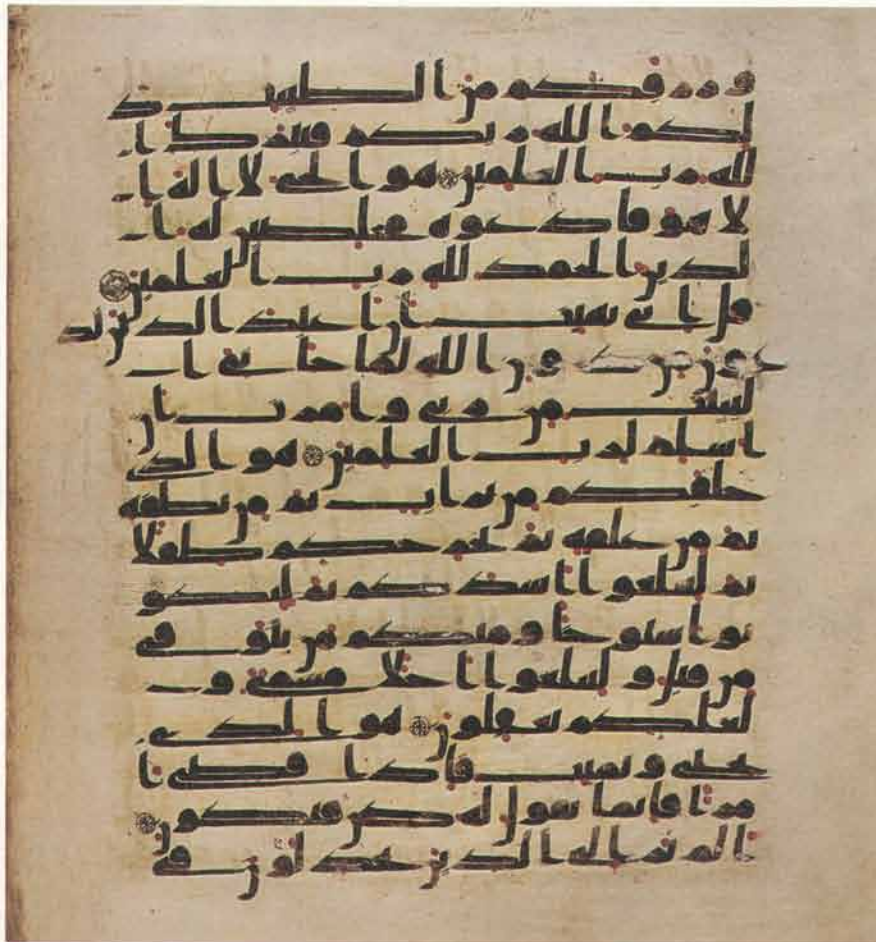 ورزقكم من الطيبت
ذلكم الله ربكم فتبرك ا
لله رب العلمين هو الحي لا اله ا
لا هو فادعوه مخلصين له ا
لدين الحمد لله رب العلمين
قل اني نهيت ان اعبد الذين تد
عون من دون الله لما جاني ا
لبينت من ربي وامرت ان
اسلم لرب العلمين هو الذي
خلقكم من تراب ثم من نطفة
ثم من علقة ثم يخرجكم طفلا
ثم لتبلغوا اشدكم ثم لتكو
نوا شيوخا ومنكم من يتوفى
من قبل ولتبلغوا اجلا مسمى و
لعلكم تعقلون هو الذي
يحي ويميت فاذا قضى ا
مرا فانما يقول له كن فيكون
الم تر الى الذين يجدلون في